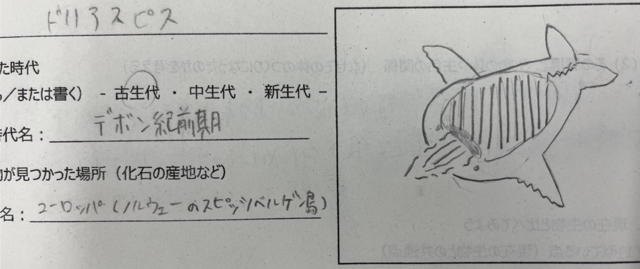 ドリアスピス
た時代
／または書く） - 古生代 ・ 中生代 ・ 新生代 -
代名： デボン紀前期
が見つかった場所（化石の産地など）
名： ヨーロッパ（ノルウェーのスピッツベルゲン島）